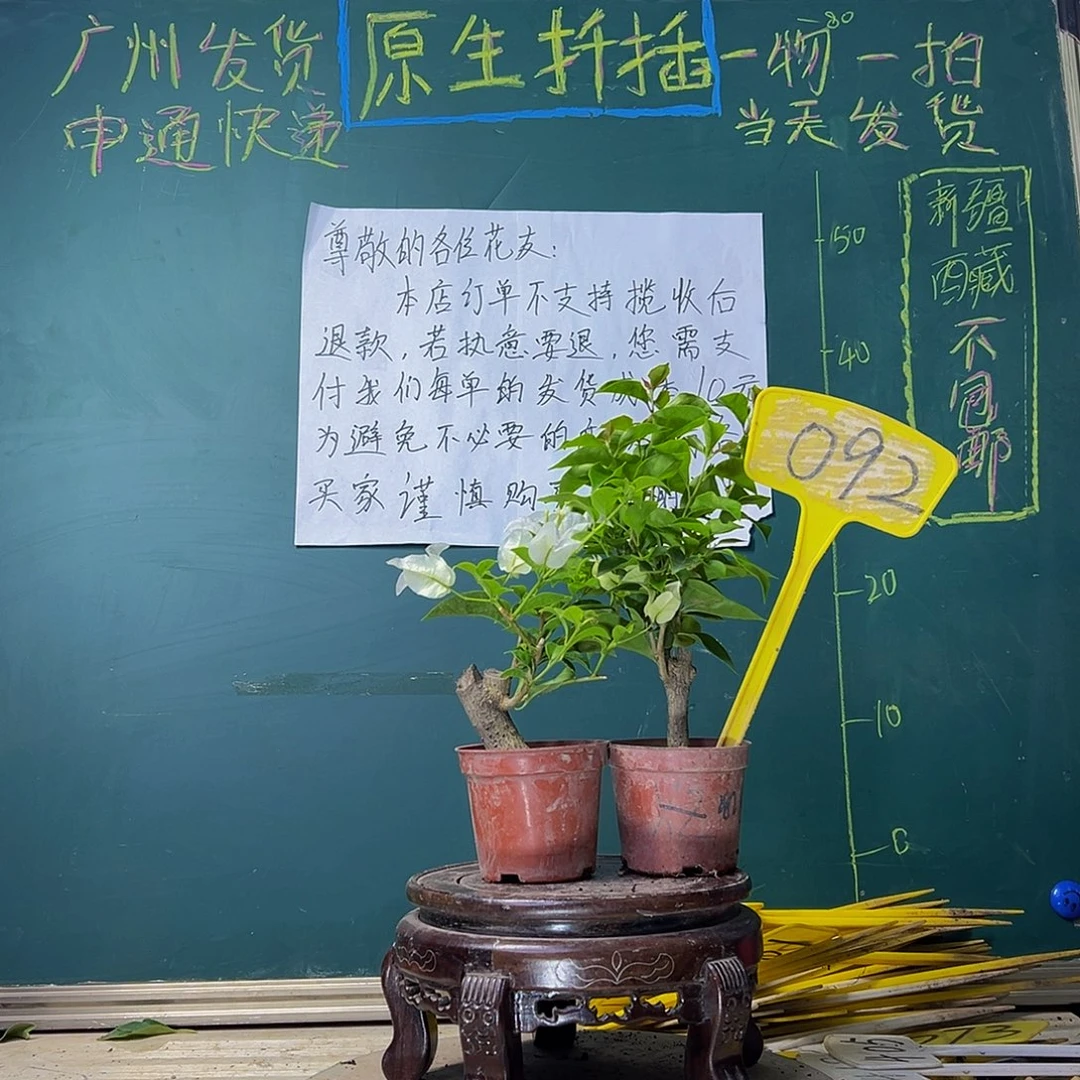 广州发货
申通快递
原生扦插
一物一拍
80
当天发货
尊敬的各位花友:
本店订单不支持揽收后
退款,若执意要退,您需支
付我们每单的发货成本10元
为避免不必要的
买家谨慎购
新疆
西藏
不包邮
50
40
20
10
0
092
73